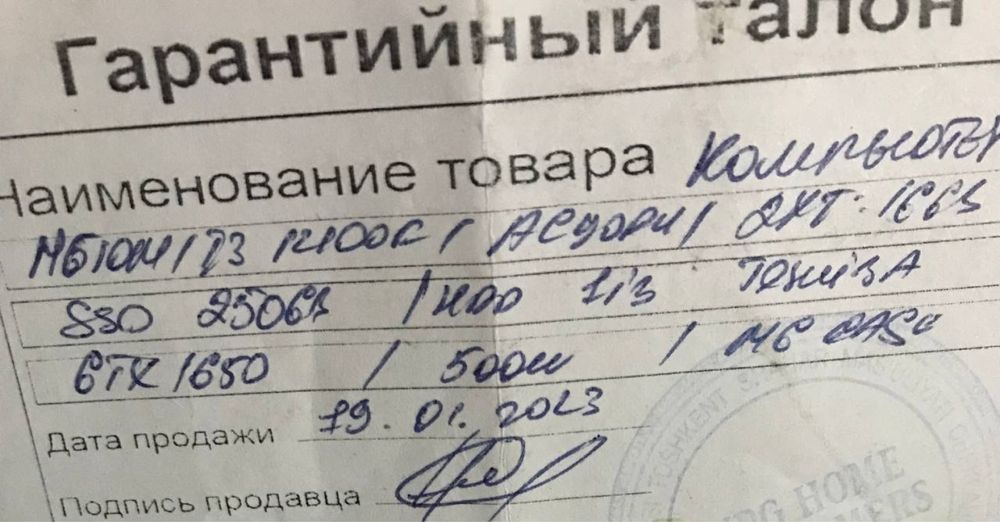 Гарантийный талон
Наименование товара Компьютер
H610M / I3 12100F / ACDDR4 / 2XT: 16GB
SSD 250GB / HDD 1TB TOSHIBA
GTX 1650 / 500W / MG CASE
Дата продажи 19.01.2023
Подпись продавца
TOSHKENT
HOME